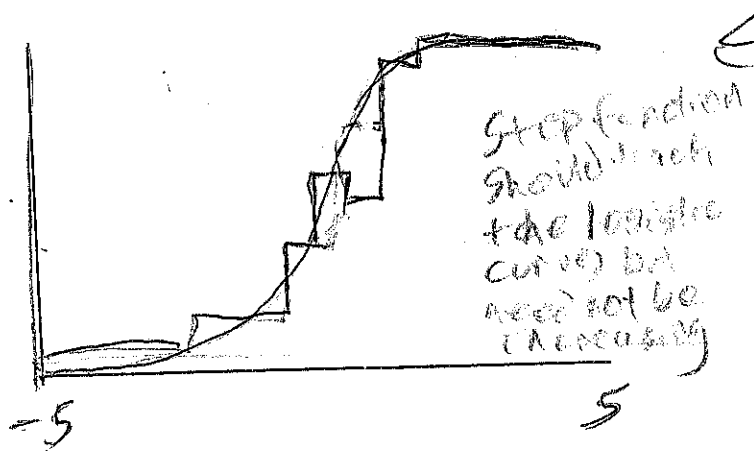 Step function
should track
the logistic
curve, but
need not be
increasing
-5
5